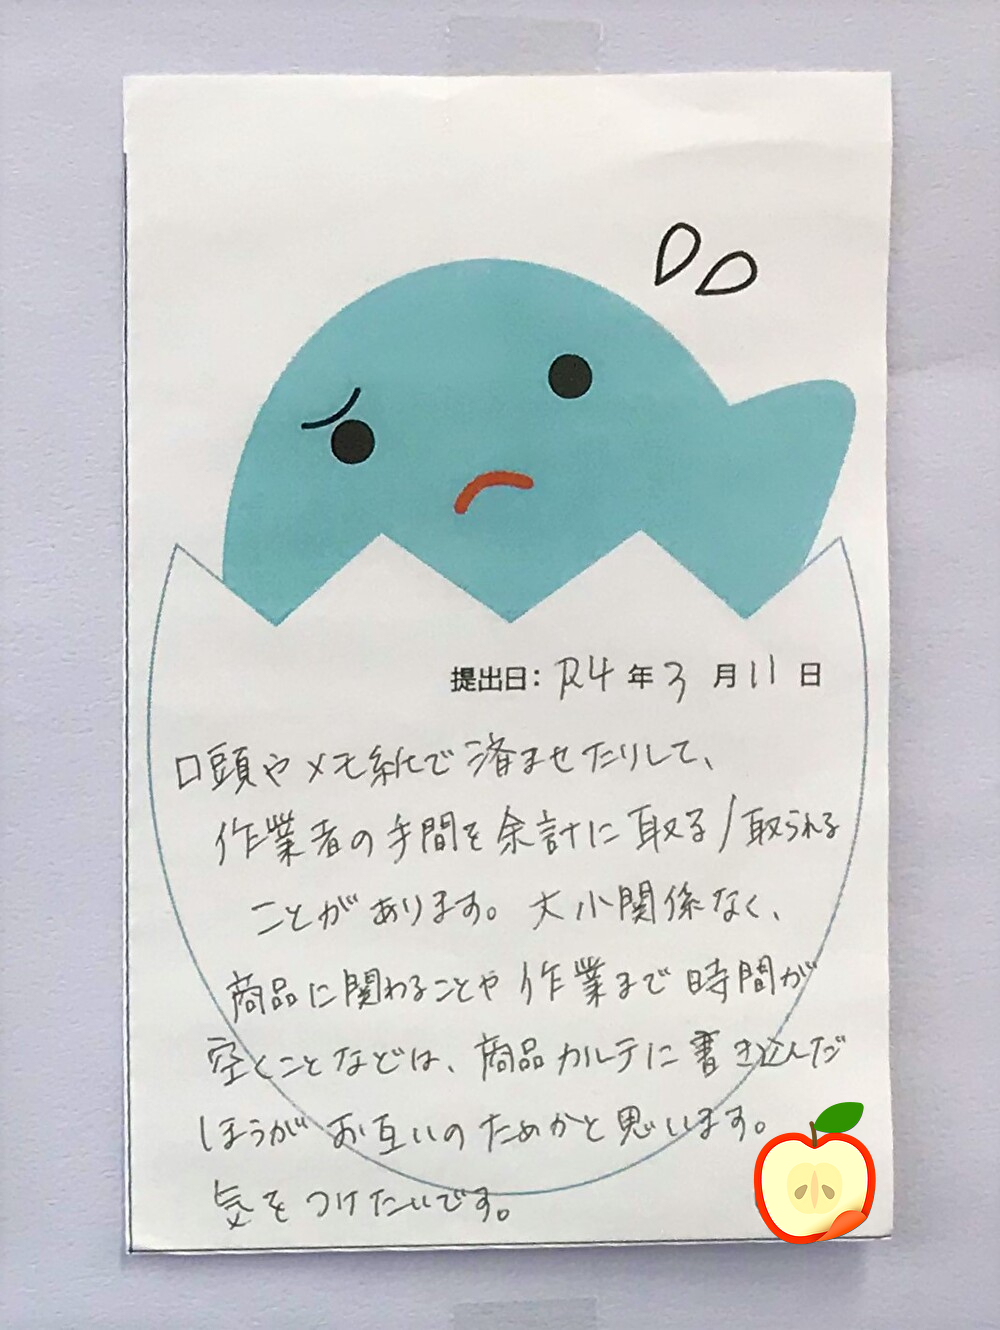 提出日：R4年3月11日
口頭やメモ紙で済ませたりして、
作業者の手間を余計に取る/取られる
ことがあります。大小関係なく、
商品に関わることや作業まで時間が
空くことなどは、商品カルテに書き込んだ
ほうがお互いのためかと思います。
気をつけたいです。